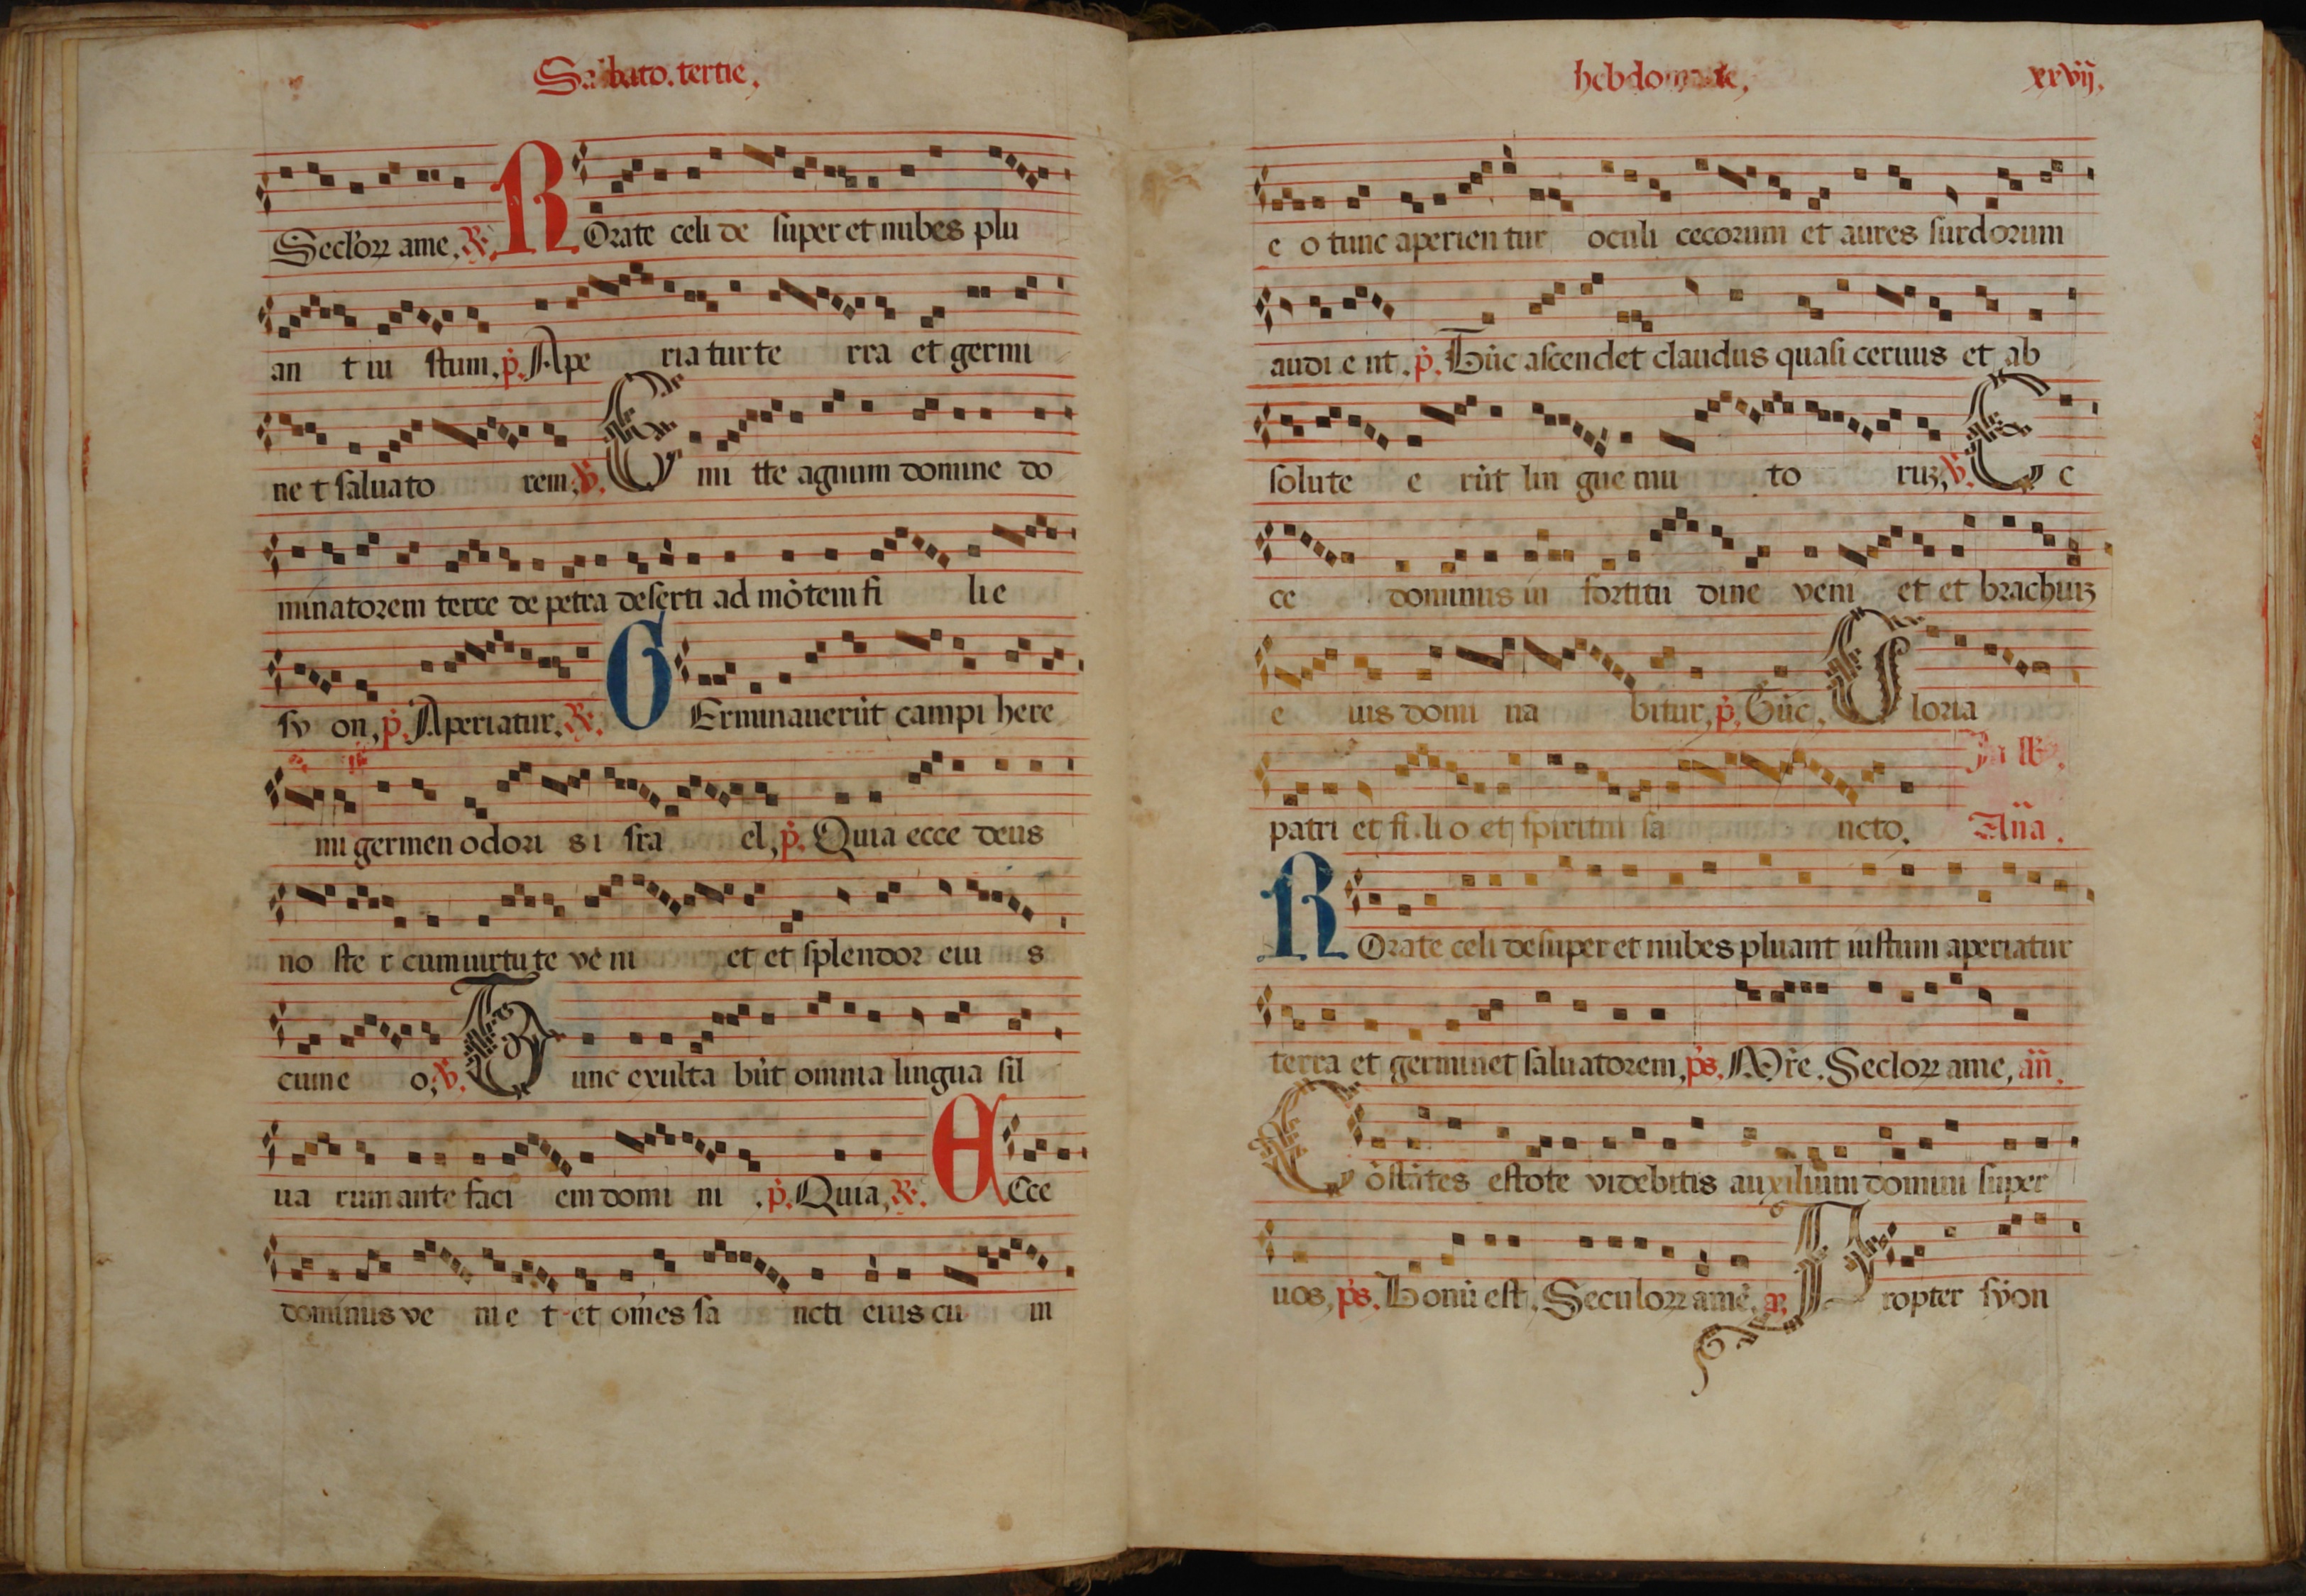 Sabbato. tertie.
Seclorꝝ ame. ℟. ROrate celi de super et nubes plu
an t iu stum. p̄. Ape ria tur te rra et germi
ne t saluato rem. ℣. Emi tte agnum domine do
minatorem terre de petra deserti ad mōtem fi lie
sy on, p̄. Aperiatur. ℟. GErminauerūt campi here
mi germen odori s i sra el, p̄. Quia ecce deus
no ste r cum uirtu te ve ni et et splendor eiu s
cum e o; ℣. Tunc exulta būt omnia lingua sil
ua rum ante faci em domi ni . p̄. Quia, ℟. ECce
dominus ve nie t et om̄es sa ncti eius cu m
hebdomade, xxvij.
e o tunc aperien tur oculi cecorum et aures surdorum
audi e nt . p̄. Tūc ascendet claudus quasi ceruus et ab
solute e rūt lin gue mu to ruꝫ, ℣. Ec
ce dominus in fortitu dine veni et et brachiuꝫ
e ius domi na bitur, p̄. Tūc, Gloria
patri et fi li o et spiritui sa ncto. An̄a.
ROrate celi desuper et nubes pluant iustum aperiatur
terra et germinet saluatorem, ps. Seclorꝝ ame, an̄.
Cōstātes estote videbitis auxilium domini super
uos, ps. Bonū est, Seculorꝝ amē, a. Propter syon